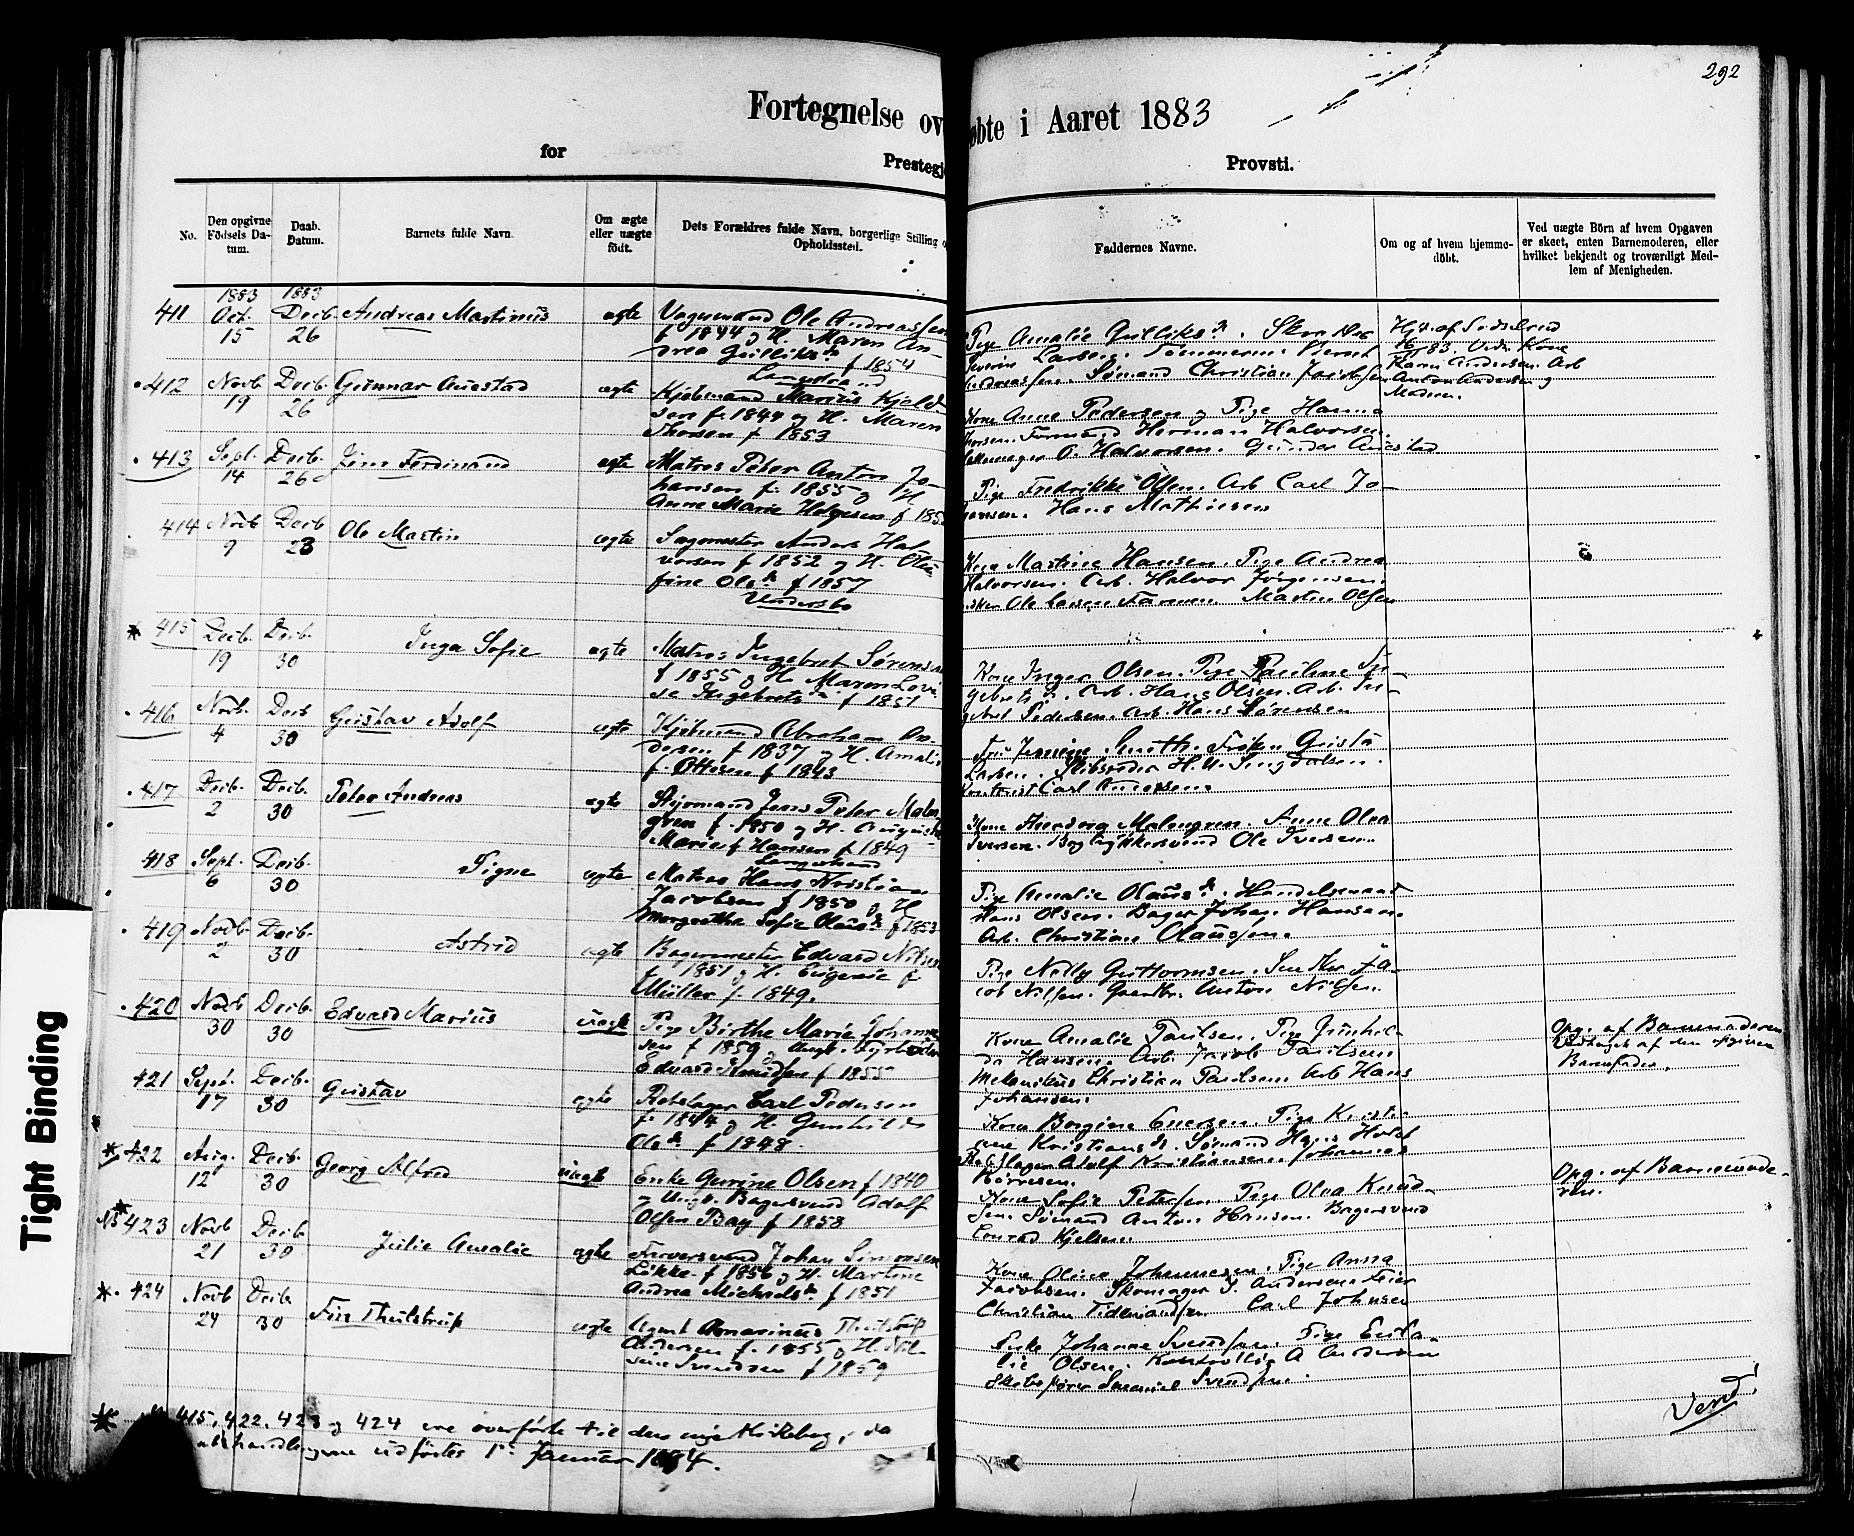 292
Fortegnelse ov
øbte i Aaret 1883
for
Prestegj
Provsti.
No.
Den opgivne Födsels Da-tum.
Daab. Datum.
Barnets fulde Navn.
Om ægte eller uægte födt.
Dets Forældres fulde Navn, borgerlige Stilling o
Opholdssted.
Faddernes Navne.
Om og af hvem hjemme-döbt.
Ved uægte Börn af hvem Opgaven
er skeet, enten Barnemoderen, eller
hvilket bekjendt og troværdigt Med-
lem af Menigheden.
1883 1883
411 Oct. 15 Decb. 26 Andreas Martinus ægte
Ole Andreassen
f 1844 og H. Maren An-
drea Gulliks f 1854
Langestrand
Pige Amalie Gulliks. 
Larsen. Tømmerm. Bernt
Andreassen. Sømand Christian Jacobsen
412 Novb 19 Decb 26 Gunnar Auestad ægte
Kjøbmand Marius Kjeld
sen f. 1844 og H. Maren
Thorsen f 1853
Kone Anne Pedersen og Pige Hanna
Thorsen. Formand Herman Halvorsen.
O. Halvorsen. Gunder Auestad
413 Sept. 14 Decb. 26 Jens Ferdinand ægte
Matros Peter Anton Jo-
hansen f. 1855 og H
Anne Marie Helgesen f 185
Pige Fredrikke Olsen. Arb Carl Jo-
hansen. Hans Mathisen
414 Novb 9 Decb 23 Ole Martin ægte
Sagmester Anders Hal
vorsen f 1852 og H. Ole
fine Ols f 1857
Undersbo
Kone Martine Hansen. Pige Andrea
Halvorsen. Arb. Halvor Jørgensen.
Ole Larsen Farmen. Martin Olsen
* 415 Decb. 19 Decb. 30 Inga Sofie ægte
Matros Ingebret Sørensen
f 1855 og H. Maren Lovi
se Ingebrets f 1851
Kone Inger Olsen. Pige Pauline In
gebrets. Arb. Hans Olsen. Arb. In-
gebret Pedersen. Arb. Hans Sørensen
416 Novb. 4 Decb 30 Gustav Adolf ægte
Kjøbmand Abraham An-
dersen f 1837 og H. Amalie
f. Ottesen f 1843
Fru Smith. Frøken Gusta
Larsen. Skibsreder H. A.
Carl Andersen.
417 Decb. 2 Decb. 30 Peter Andreas ægte
Styrmand Jens Peter Malm
gren f. 1850 og H. Augusta
Marie f Hansen f 1849
Langestrand
Kone Malmgren. Anne Olea
Iversen. Bogtrykkersvend Ole Iversen.
418 Sept. 6 Decb. 30 Signe ægte
Matros Hans Kristian
Jacobsen f 1850 og H
Margrethe Sofie Olaus f 1853
Pige Amalie Olaus. Handelsmand
Hans Olsen. Bager Johan Hansen.
Arb. Christian Olaussen.
419 Novb. 2 Decb. 30 Astrid ægte
Bagermester Edvard Nilsen
f 1851 og H. Eugenie f
Müller f. 1849.
Pige Nelly Guttormsen. Ja-
cob Nilsen. Anton Nilsen.
420 Novb 30 Decb. 30 Edvard Marius uægte
Pige Birthe Marie Johanne
sen f 1859 og Ungk.
Edvard Knudsen f 1855
Kone Amalie Paulsen. Pige Gunhil-
da Hansen. Arb Jacob Paulsen
Mekanikus Christian Paulsen Arb Hans
Johansen.
Opg. af Barnemoderen
Vedtaget af den opgivne
Barnefader.
421 Sept. 17 Decb. 30 Gustav ægte
Rebslager Carl Pedersen
f. 1844 og H. Gunhild
Ols f 1848.
Kone Borgine Evensen. Pige Kristi
ane Kristians. Sømand Hans Holst
Rebslager Adolf Kristiansen. Johannes
Børresen.
* 422 Aug. 12 Decb. 30 Georg Alfred uægte
Enke Gurine Olsen f 1840
og Ungk. Bagersvend Adolf
Olsen Bay f 1858
Kone Sofie Petersen. Pige Olea Knud-
sen. Sømand Anton Hansen. Bagersvend
Conrad Kjelsen.
Opg. af Barnemode-
ren.
* 423 Novb 21 Decb. 30 Julie Amalie ægte
Farversvend Johan Simonsen
Løkke f 1856 og H. Martine
Andrea Michaels f 1851
Kone Oline Johannesen. Pige Anna
Jacobsen. Skomager S. Andersen. Feier
Christian Tidemandsen Carl Johnsen
* 424 Novb 24 Decb. 30 Finn Thulstrup ægte
Agent Anarinus Thulstrup
Andersen f. 1855 og H. Nil-
sine Svendsen f 1859
Enke Johanne Svendsen. Pige Eula-
lie Olsen. A Andersen
Skibsfører Samuel Svendsen.
Vend!
* 415, 422, 423 og 424 ere overførte til den nye Kirkebog, da
handlingerne udførtes 1ste Januar 1884.
Tight Binding